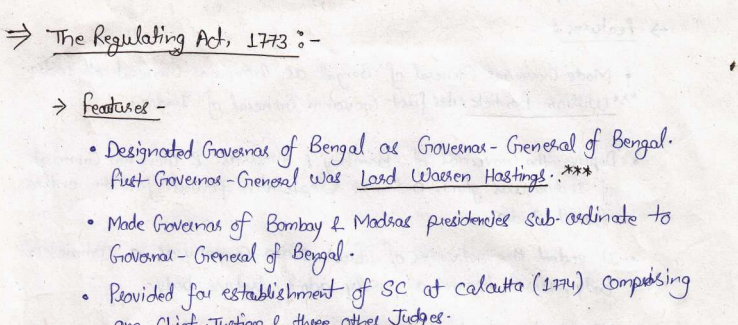 ⇒ The Regulating Act, 1773 :-
→ Features -
• Designated Governor of Bengal as Governor - General of Bengal.
First Governor - General was Lord Warren Hastings. ***
• Made Governor of Bombay & Madras presidencies sub-ordinate to
Governor - General of Bengal.
• Provided for establishment of SC at Calcutta (1774) comprising
one Chief Justice & three other Judges.